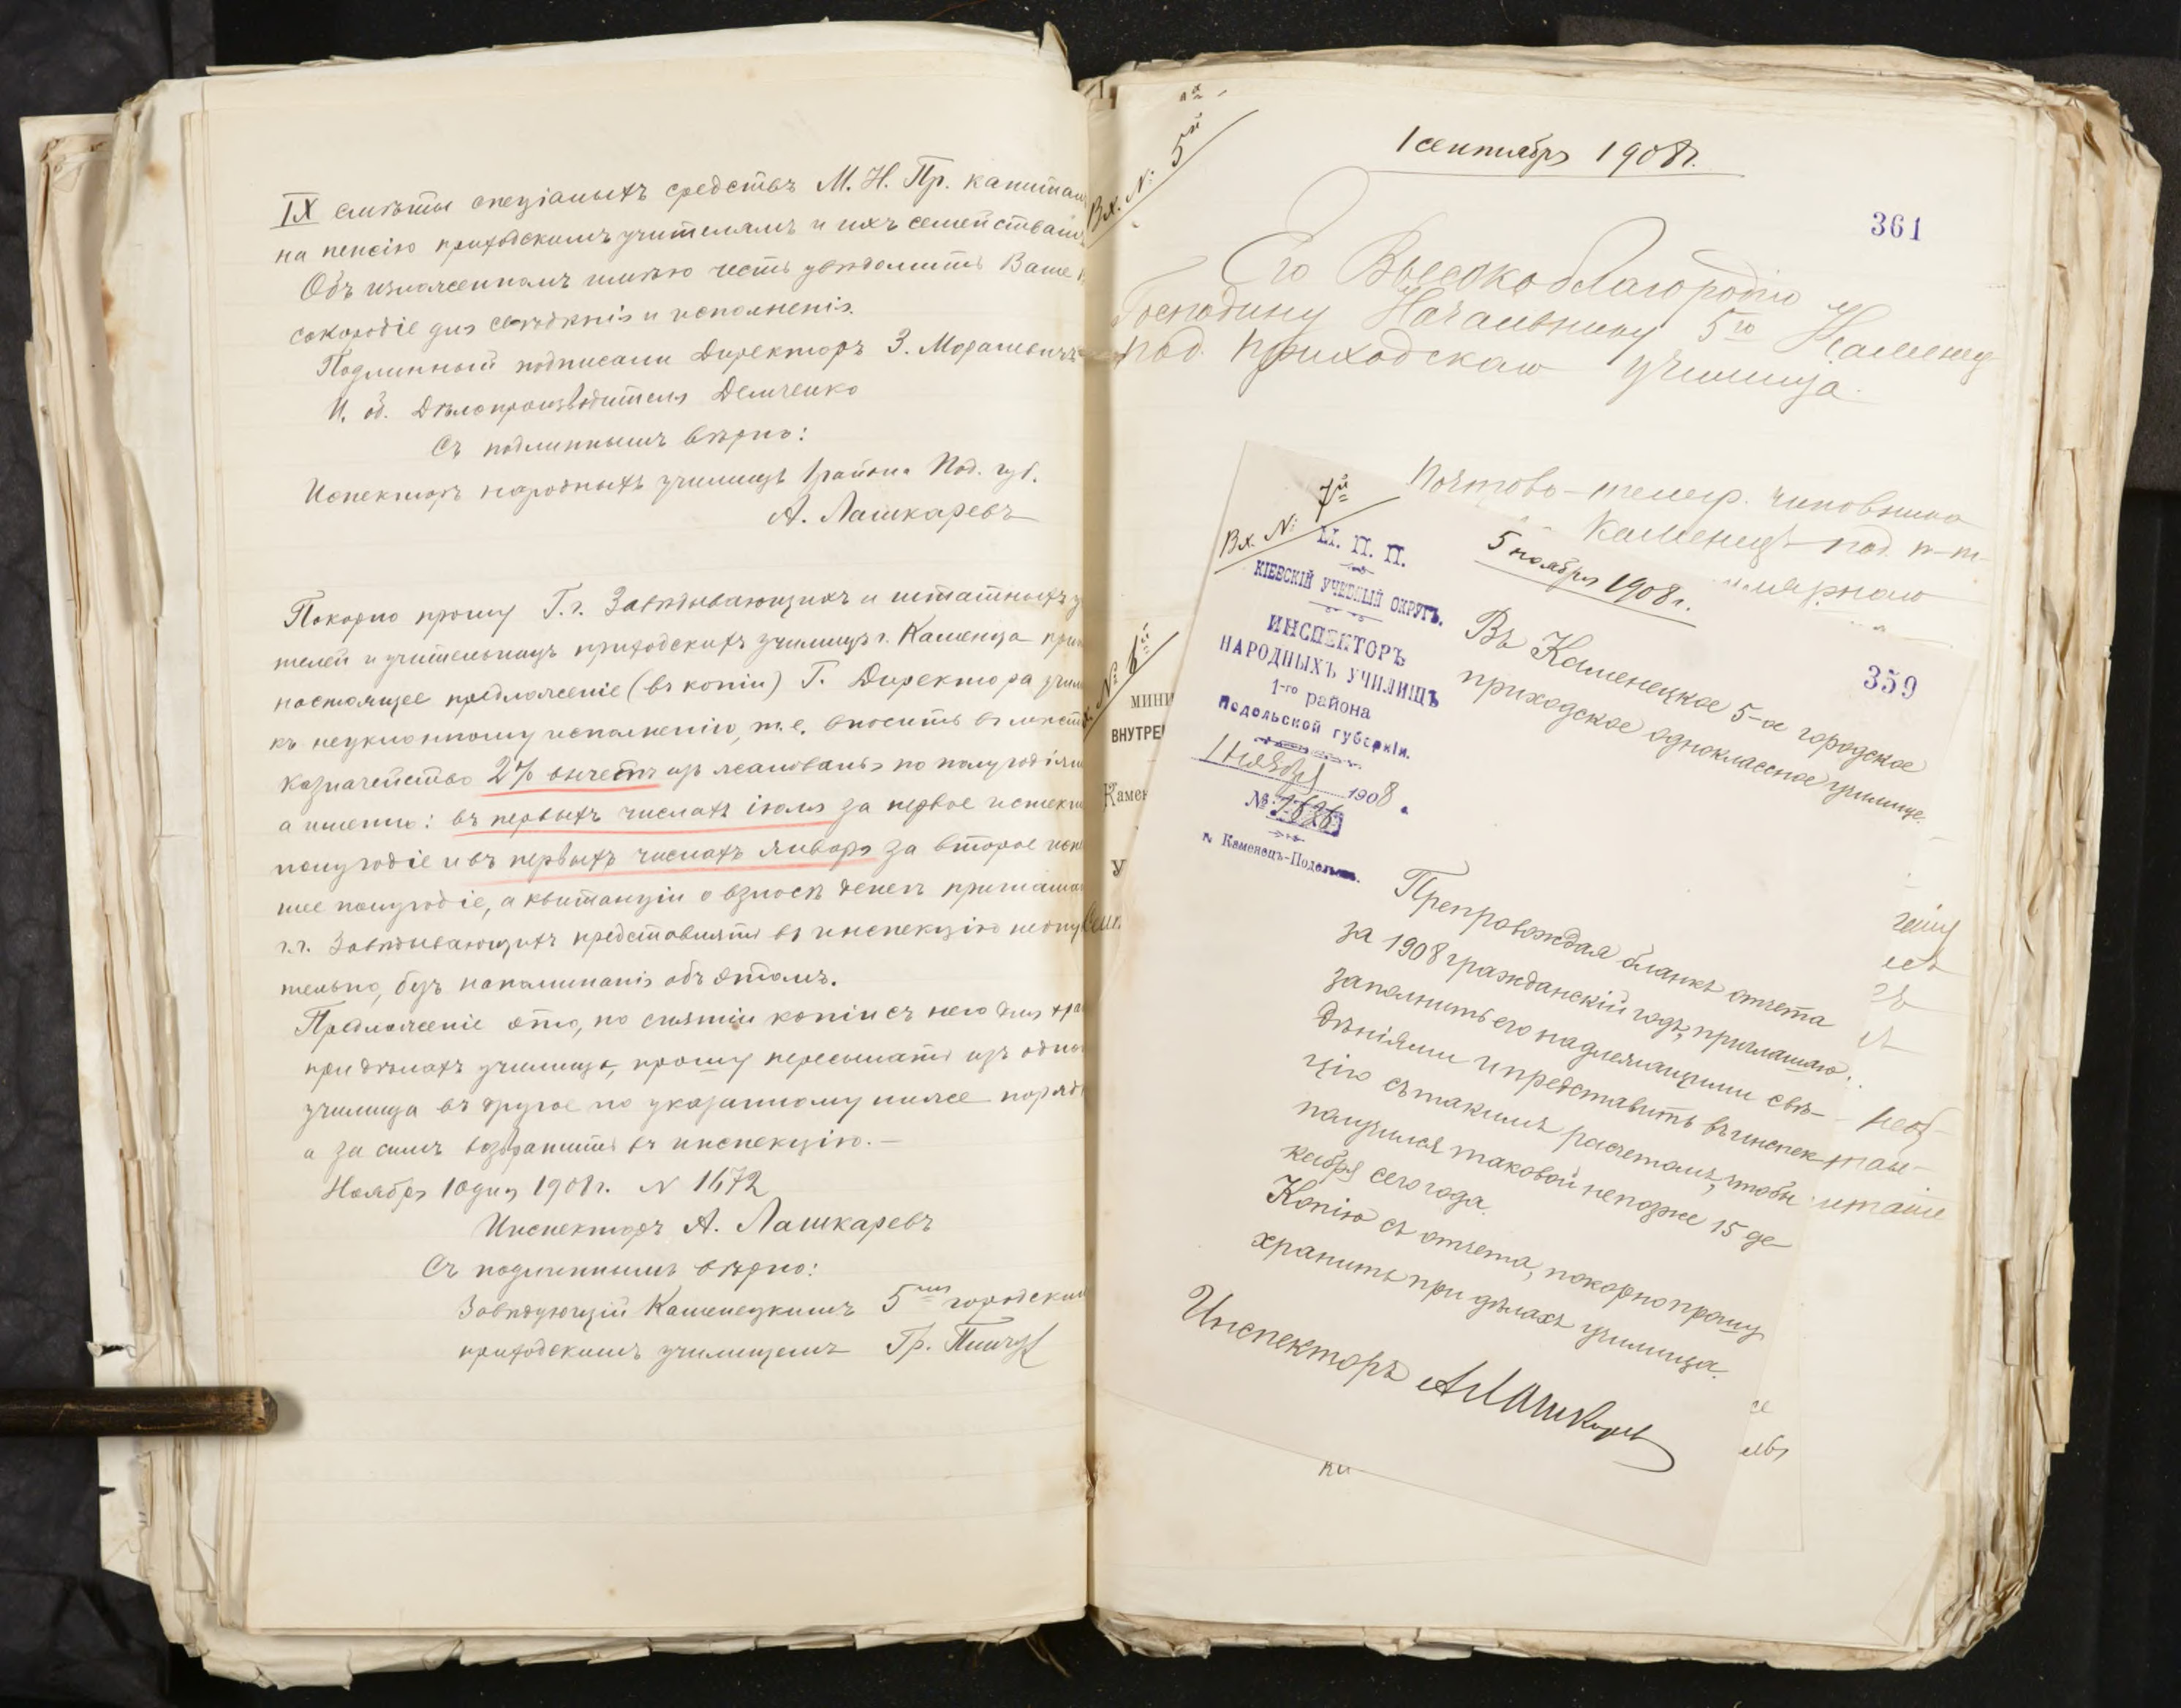 IX смѣты спеціальныхъ средствъ М. Н. Пр. капитал
на пенсію приходскимъ учителямъ и ихъ семействамъ
Объ изложенномъ имѣю честь увѣдомить Ваше
сокородіе для свѣдѣнія и исполненія.
Подлинный подписали Директоръ З. Морачевичъ
И. об. Дѣлопроизводителя Демченко
Съ подлиннымъ вѣрно:
Испекторъ народныхъ училищъ 1 района Под. губ.
А. Лашкаревъ
Покорно прошу Г.г. Завѣдывающихъ и штатныхъ у
телей и учительницъ приходскихъ училищъ г. Каменца при
настоящее предложеніе (въ копіи) Г. Директора учил
къ неуклонному исполненію, т.е. вносить въ мѣстн
казначейство 2% вычетъ изъ жалованья по полугодіям
а именно: въ первыхъ числахъ іюля за первое истекш
полугодіе и въ первыхъ числахъ января за второе ист
шее полугодіе, а квитанціи о взносѣ денегъ приглаша
г.г. Завѣдывающихъ представлять въ инспекцію неопу
тельно, безъ напоминанія объ этомъ.
Предложеніе это, по снятіи копіи съ него для хра
при дѣлахъ училища, прошу пересылать изъ одно
училища въ другое по указанному ниже поряд
а за симъ возвратить въ инспекцію.—
Ноября 10 дня 1908 г. N 1672
Инспекторъ А. Лашкаревъ
Съ подлиннымъ вѣрно:
Завѣдующій Каменецкимъ 5мъ городским
приходскимъ училищемъ Гр.
Вх. N: 5й
1 сентября 1908 г.
361
Его Высокоблагородію
Господину Начальнику 5го Каменец
под. приходскаго училища.
Почтово-телегр. чиновника
Каменецъ-под. п-т-
Вх. N: 7й
М. П. П.
КІЕВСКІЙ УЧЕБНЫЙ ОКРУГЪ.
ИНСПЕКТОРЪ
НАРОДНЫХЪ УЧИЛИЩЪ
1-го района
Подольской губерніи.
1 ноября 1908.
№
г. Каменецъ-Подольск.
5 ноября 1908 г.
359
Въ Каменецкое 5-ое городское
приходское одноклассное училище.
Препровождая бланкъ отчета
за 1908 гражданскій годъ, приглашаю
заполнить его надлежащими свѣ-
дѣніями и представить въ инспек-
цію съ такимъ расчетомъ, чтобы
получился таковой не позже 15 де-
кабря сего года.
Копію съ отчета, покорно прошу
хранить при дѣлахъ училища.
Инспекторъ А Лашкаревъ
МИНИ
ВНУТРЕ
Камен
У
ки